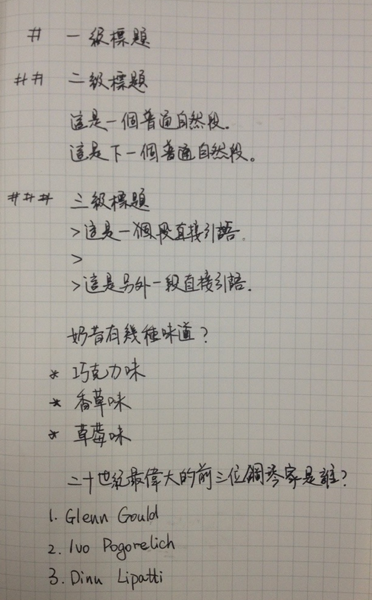 # 一級標題
## 二級標題
這是一個普通自然段。
這是下一個普通自然段。
### 三級標題
>這是一個段直接引語。
>
>這是另外一段直接引語。
奶昔有幾種味道?
* 巧克力味
* 香草味
* 草莓味
二十世紀最偉大的前三位鋼琴家是誰?
1. Glenn Gould
2. Ivo Pogorelich
3. Dinu Lipatti